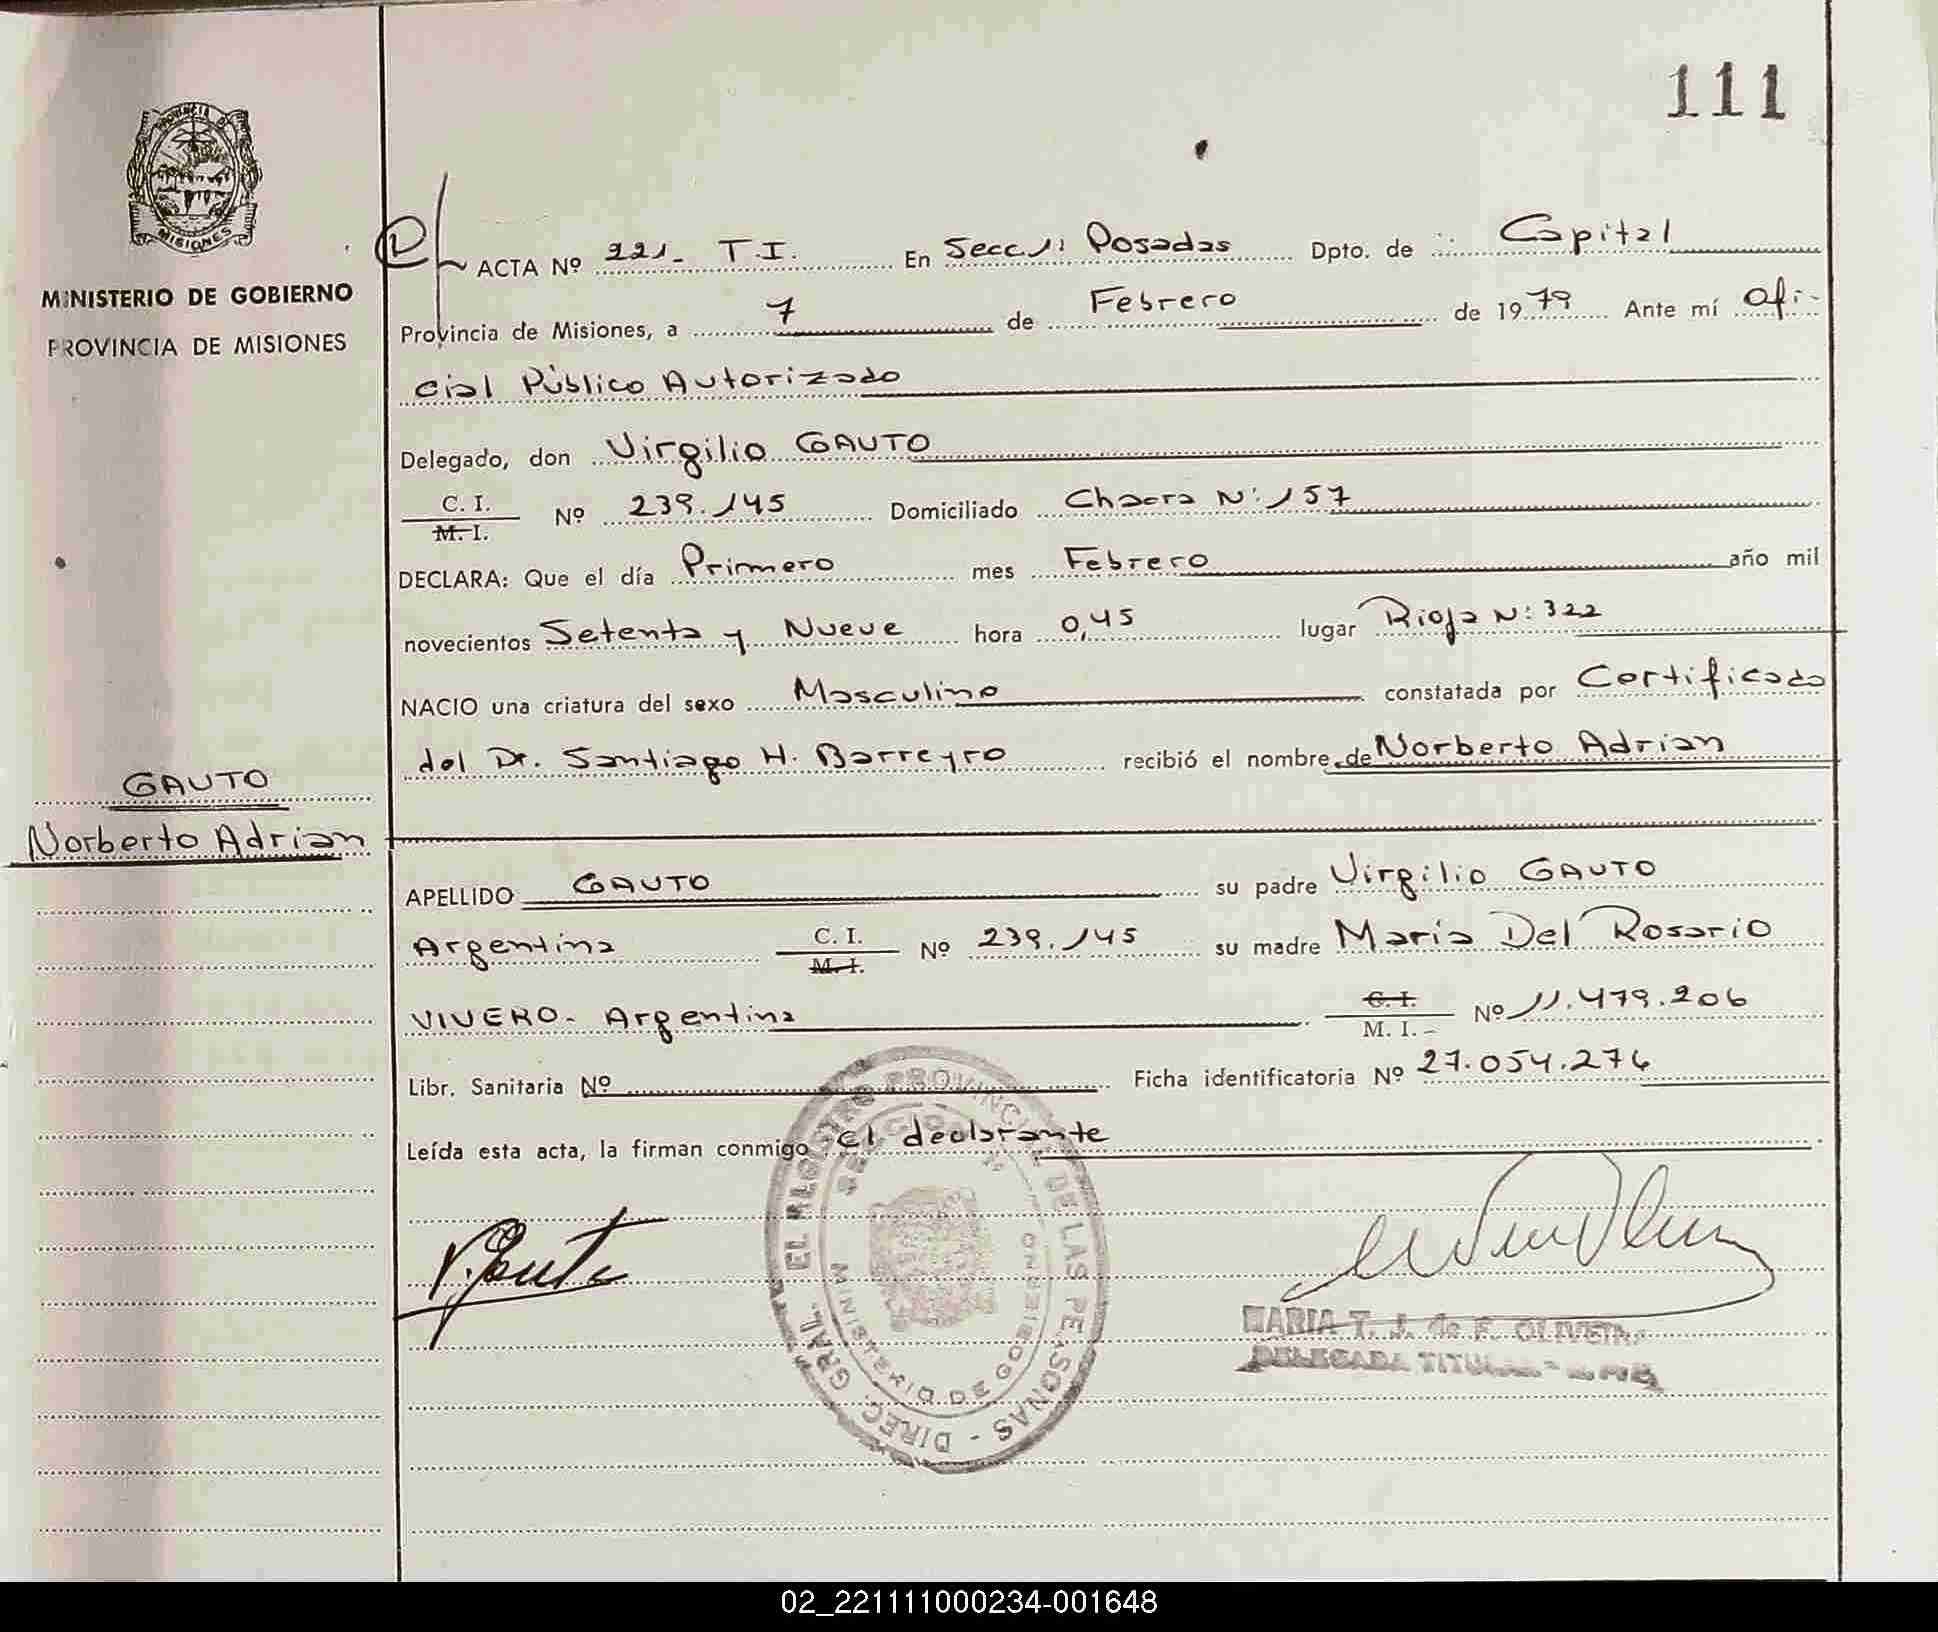 111
PROVINCIA DE
MISIONES
MINISTERIO DE GOBIERNO
PROVINCIA DE MISIONES
ACTA Nº 221- T.I. En Secc 1: Posadas Dpto. de Capital
Provincia de Misiones, a 7 de Febrero de 1979 Ante mí Ofi-
cial Público Autorizado
Delegado, don Virgilio GAUTO
C. I.
M. I. Nº 239.145 Domiciliado Chacra N: 157
DECLARA: Que el día Primero mes Febrero año mil
novecientos Setenta y Nueve hora 0,45 lugar Rioja N: 322
NACIO una criatura del sexo Masculino constatada por Certificado
del Dr. Santiago H. Barreyro recibió el nombre de Norberto Adrian
GAUTO
Norberto Adrian
APELLIDO GAUTO su padre Virgilio GAUTO
Argentina C. I. M. I. Nº 239.145 su madre Maria Del Rosario
VIVERO- Argentina C. I. M. I. Nº 11.479.206
Libr. Sanitaria Nº Ficha identificatoria Nº 27.054.276
Leída esta acta, la firman conmigo el declarante
V. Gauto
DIREC. GRAL. EL REGISTRO PROVINCIAL DE LAS PERSONAS
MINISTERIO DE GOBIERNO
MARIA T. J. de F. OLIVEIRA
DELEGADA TITULAR
02_221111000234-001648